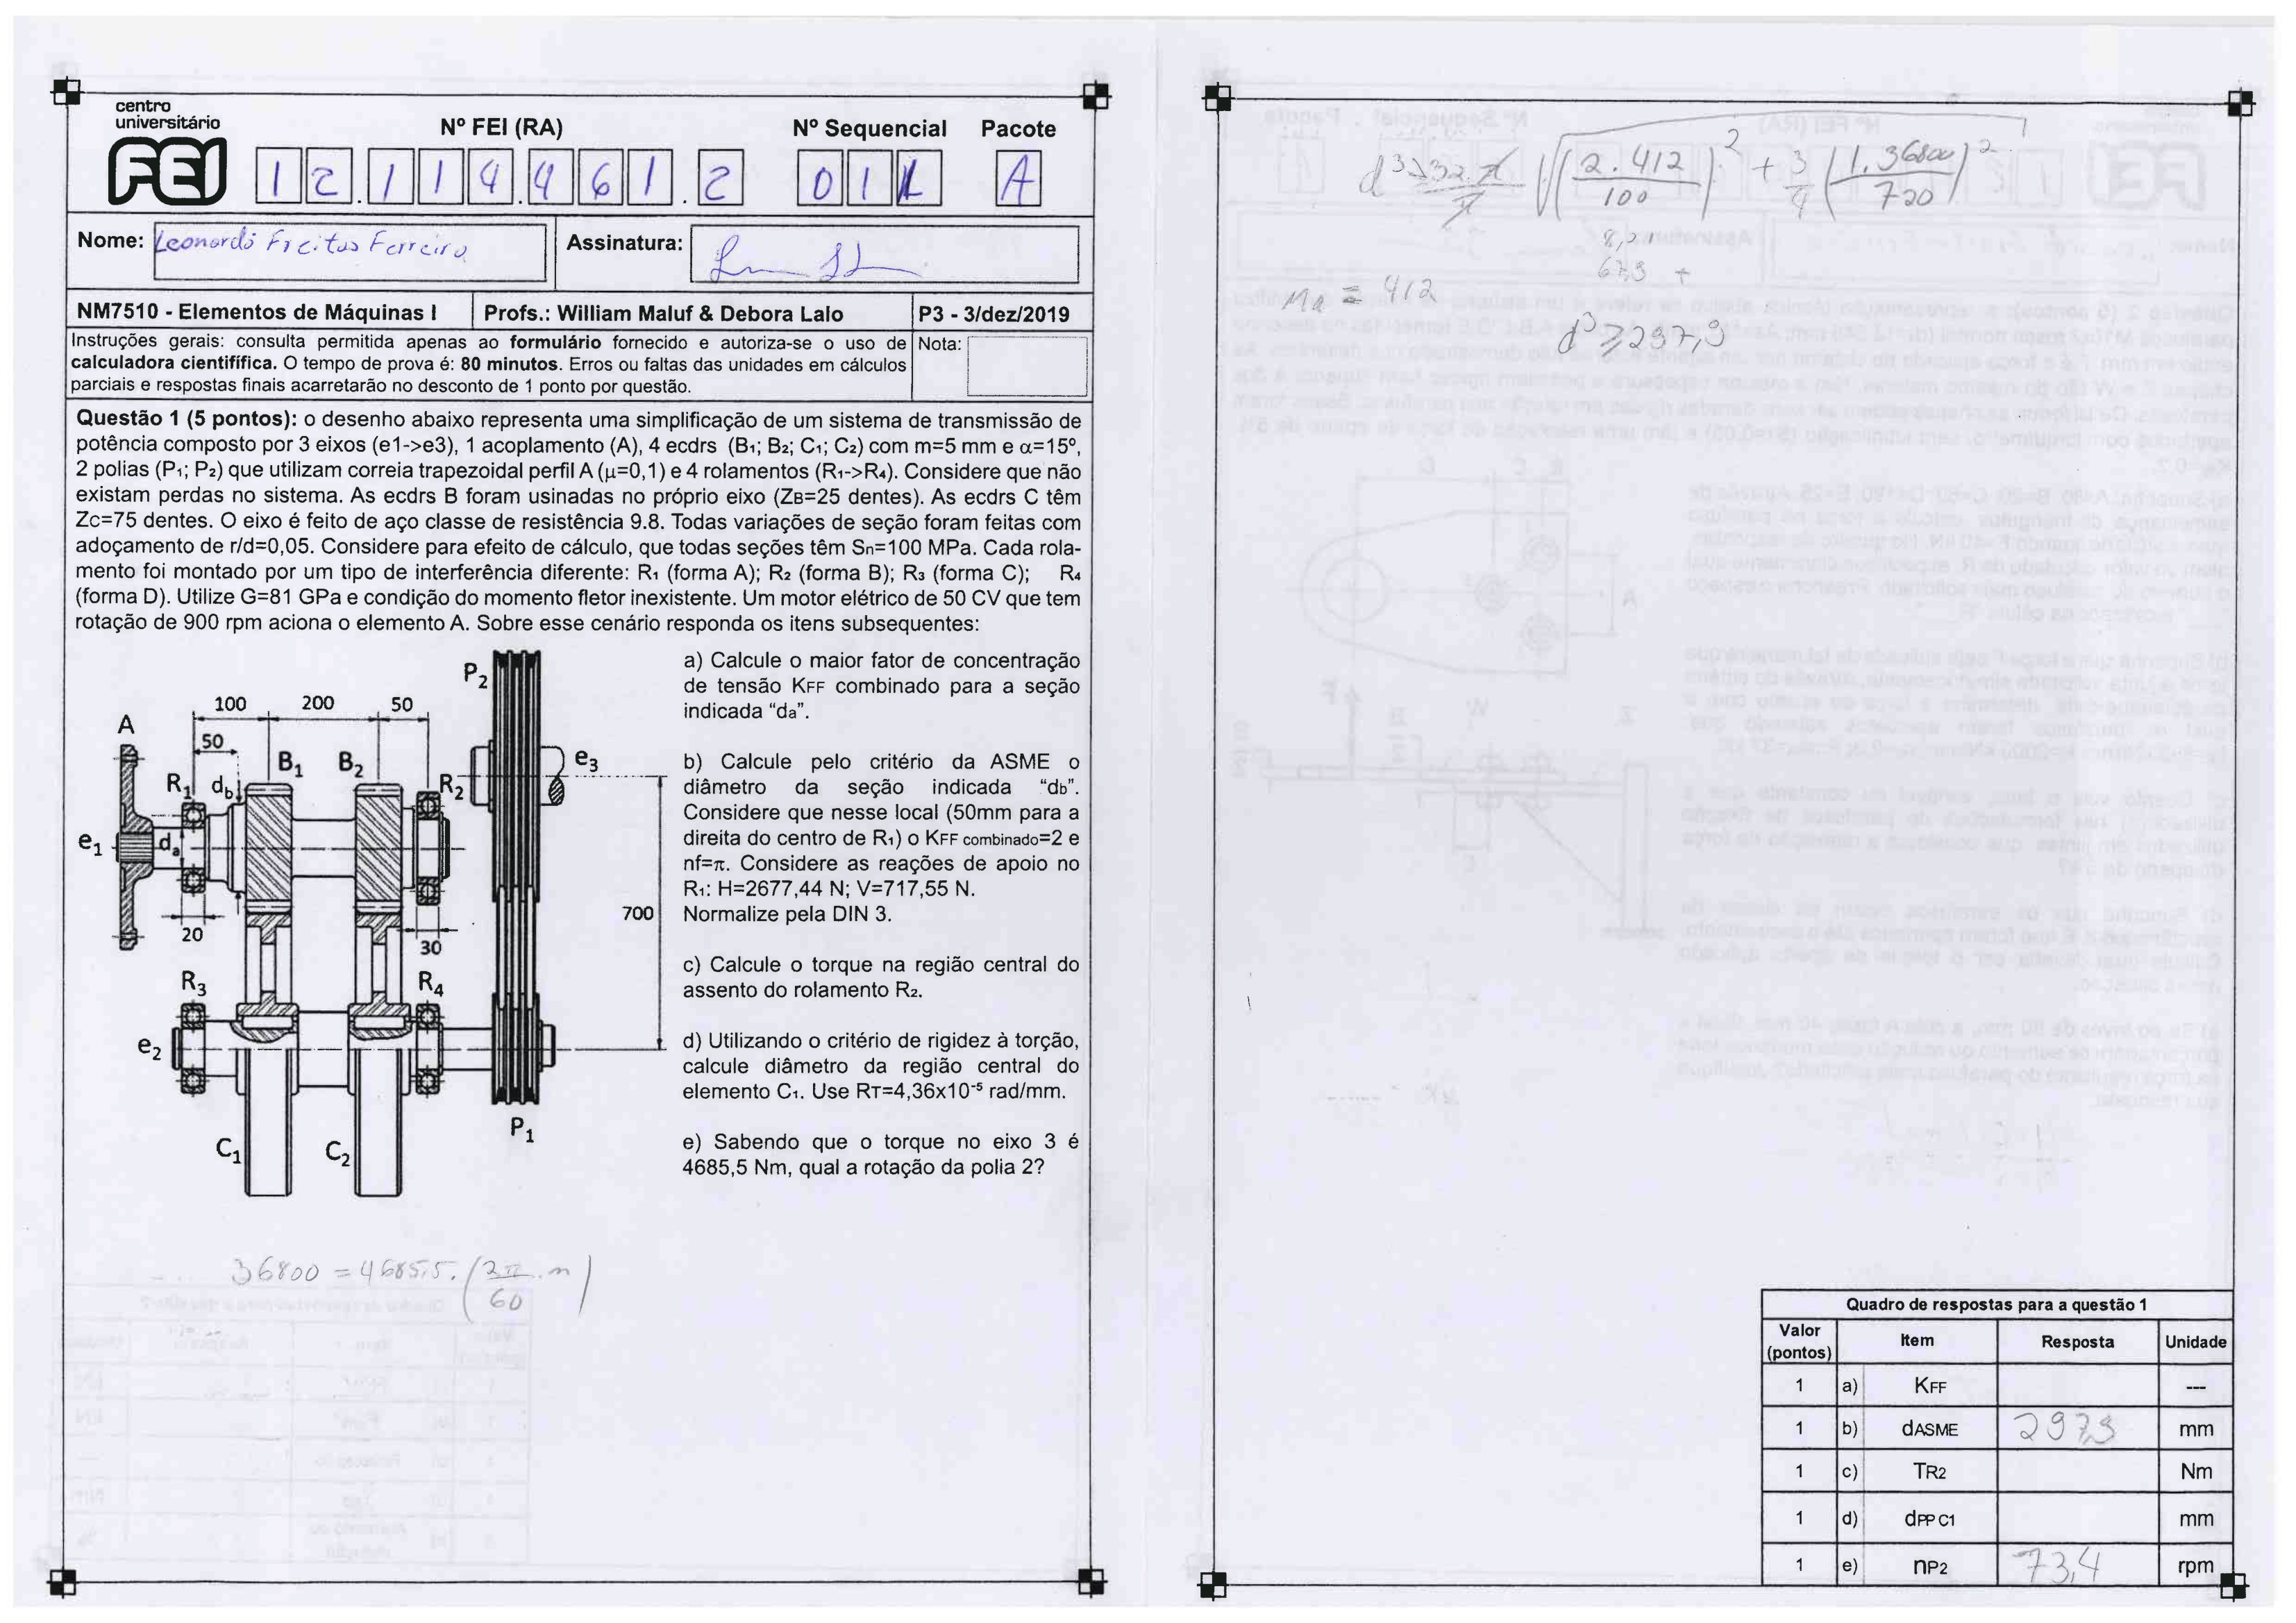 centro
universitário
FEI
Nº FEI (RA)
Nº Sequencial
Pacote
12.114461.2
011
A
Nome: Leonardo Freitas Ferreira
Assinatura:
NM7510 - Elementos de Máquinas I
Profs.: William Maluf & Debora Lalo
P3 - 3/dez/2019
Instruções gerais: consulta permitida apenas ao formulário fornecido e autoriza-se o uso de
calculadora cientifífica. O tempo de prova é: 80 minutos. Erros ou faltas das unidades em cálculos
parciais e respostas finais acarretarão no desconto de 1 ponto por questão.
Nota:
Questão 1 (5 pontos): o desenho abaixo representa uma simplificação de um sistema de transmissão de
potência composto por 3 eixos (e1->e3), 1 acoplamento (A), 4 ecdrs (B1; B2; C1; C2) com m=5 mm e α=15º,
2 polias (P1; P2) que utilizam correia trapezoidal perfil A (μ=0,1) e 4 rolamentos (R1->R4). Considere que não
existam perdas no sistema. As ecdrs B foram usinadas no próprio eixo (ZB=25 dentes). As ecdrs C têm
Zc=75 dentes. O eixo é feito de aço classe de resistência 9.8. Todas variações de seção foram feitas com
adoçamento de r/d=0,05. Considere para efeito de cálculo, que todas seções têm Sn=100 MPa. Cada rola-
mento foi montado por um tipo de interferência diferente: R1 (forma A); R2 (forma B); R3 (forma C); R4
(forma D). Utilize G=81 GPa e condição do momento fletor inexistente. Um motor elétrico de 50 CV que tem
rotação de 900 rpm aciona o elemento A. Sobre esse cenário responda os itens subsequentes:
P2
100
200
50
A
50
B1
B2
e3
R1
db
R2
e1
da
700
20
30
R3
R4
e2
C1
C2
P1
a) Calcule o maior fator de concentração
de tensão KFF combinado para a seção
indicada “da”.
b) Calcule pelo critério da ASME o
diâmetro da seção indicada “db”.
Considere que nesse local (50mm para a
direita do centro de R1) o KFF combinado=2 e
nf=π. Considere as reações de apoio no
R1: H=2677,44 N; V=717,55 N.
Normalize pela DIN 3.
c) Calcule o torque na região central do
assento do rolamento R2.
d) Utilizando o critério de rigidez à torção,
calcule diâmetro da região central do
elemento C1. Use RT=4,36x10⁻⁵ rad/mm.
e) Sabendo que o torque no eixo 3 é
4685,5 Nm, qual a rotação da polia 2?
36800 = 4685,5. (2π/60 . n)
d³ ≥ 32.π/π √((2.412/100)² + 3/4 (1.36800/720)²)
8,21
67,9 +
Ma = 412
d³ ≥ 297,9
Quadro de respostas para a questão 1
Valor (pontos) Item Resposta Unidade
1 a) KFF ---
1 b) dASME 297,9 mm
1 c) TR2 Nm
1 d) dPP C1 mm
1 e) nP2 73,4 rpm